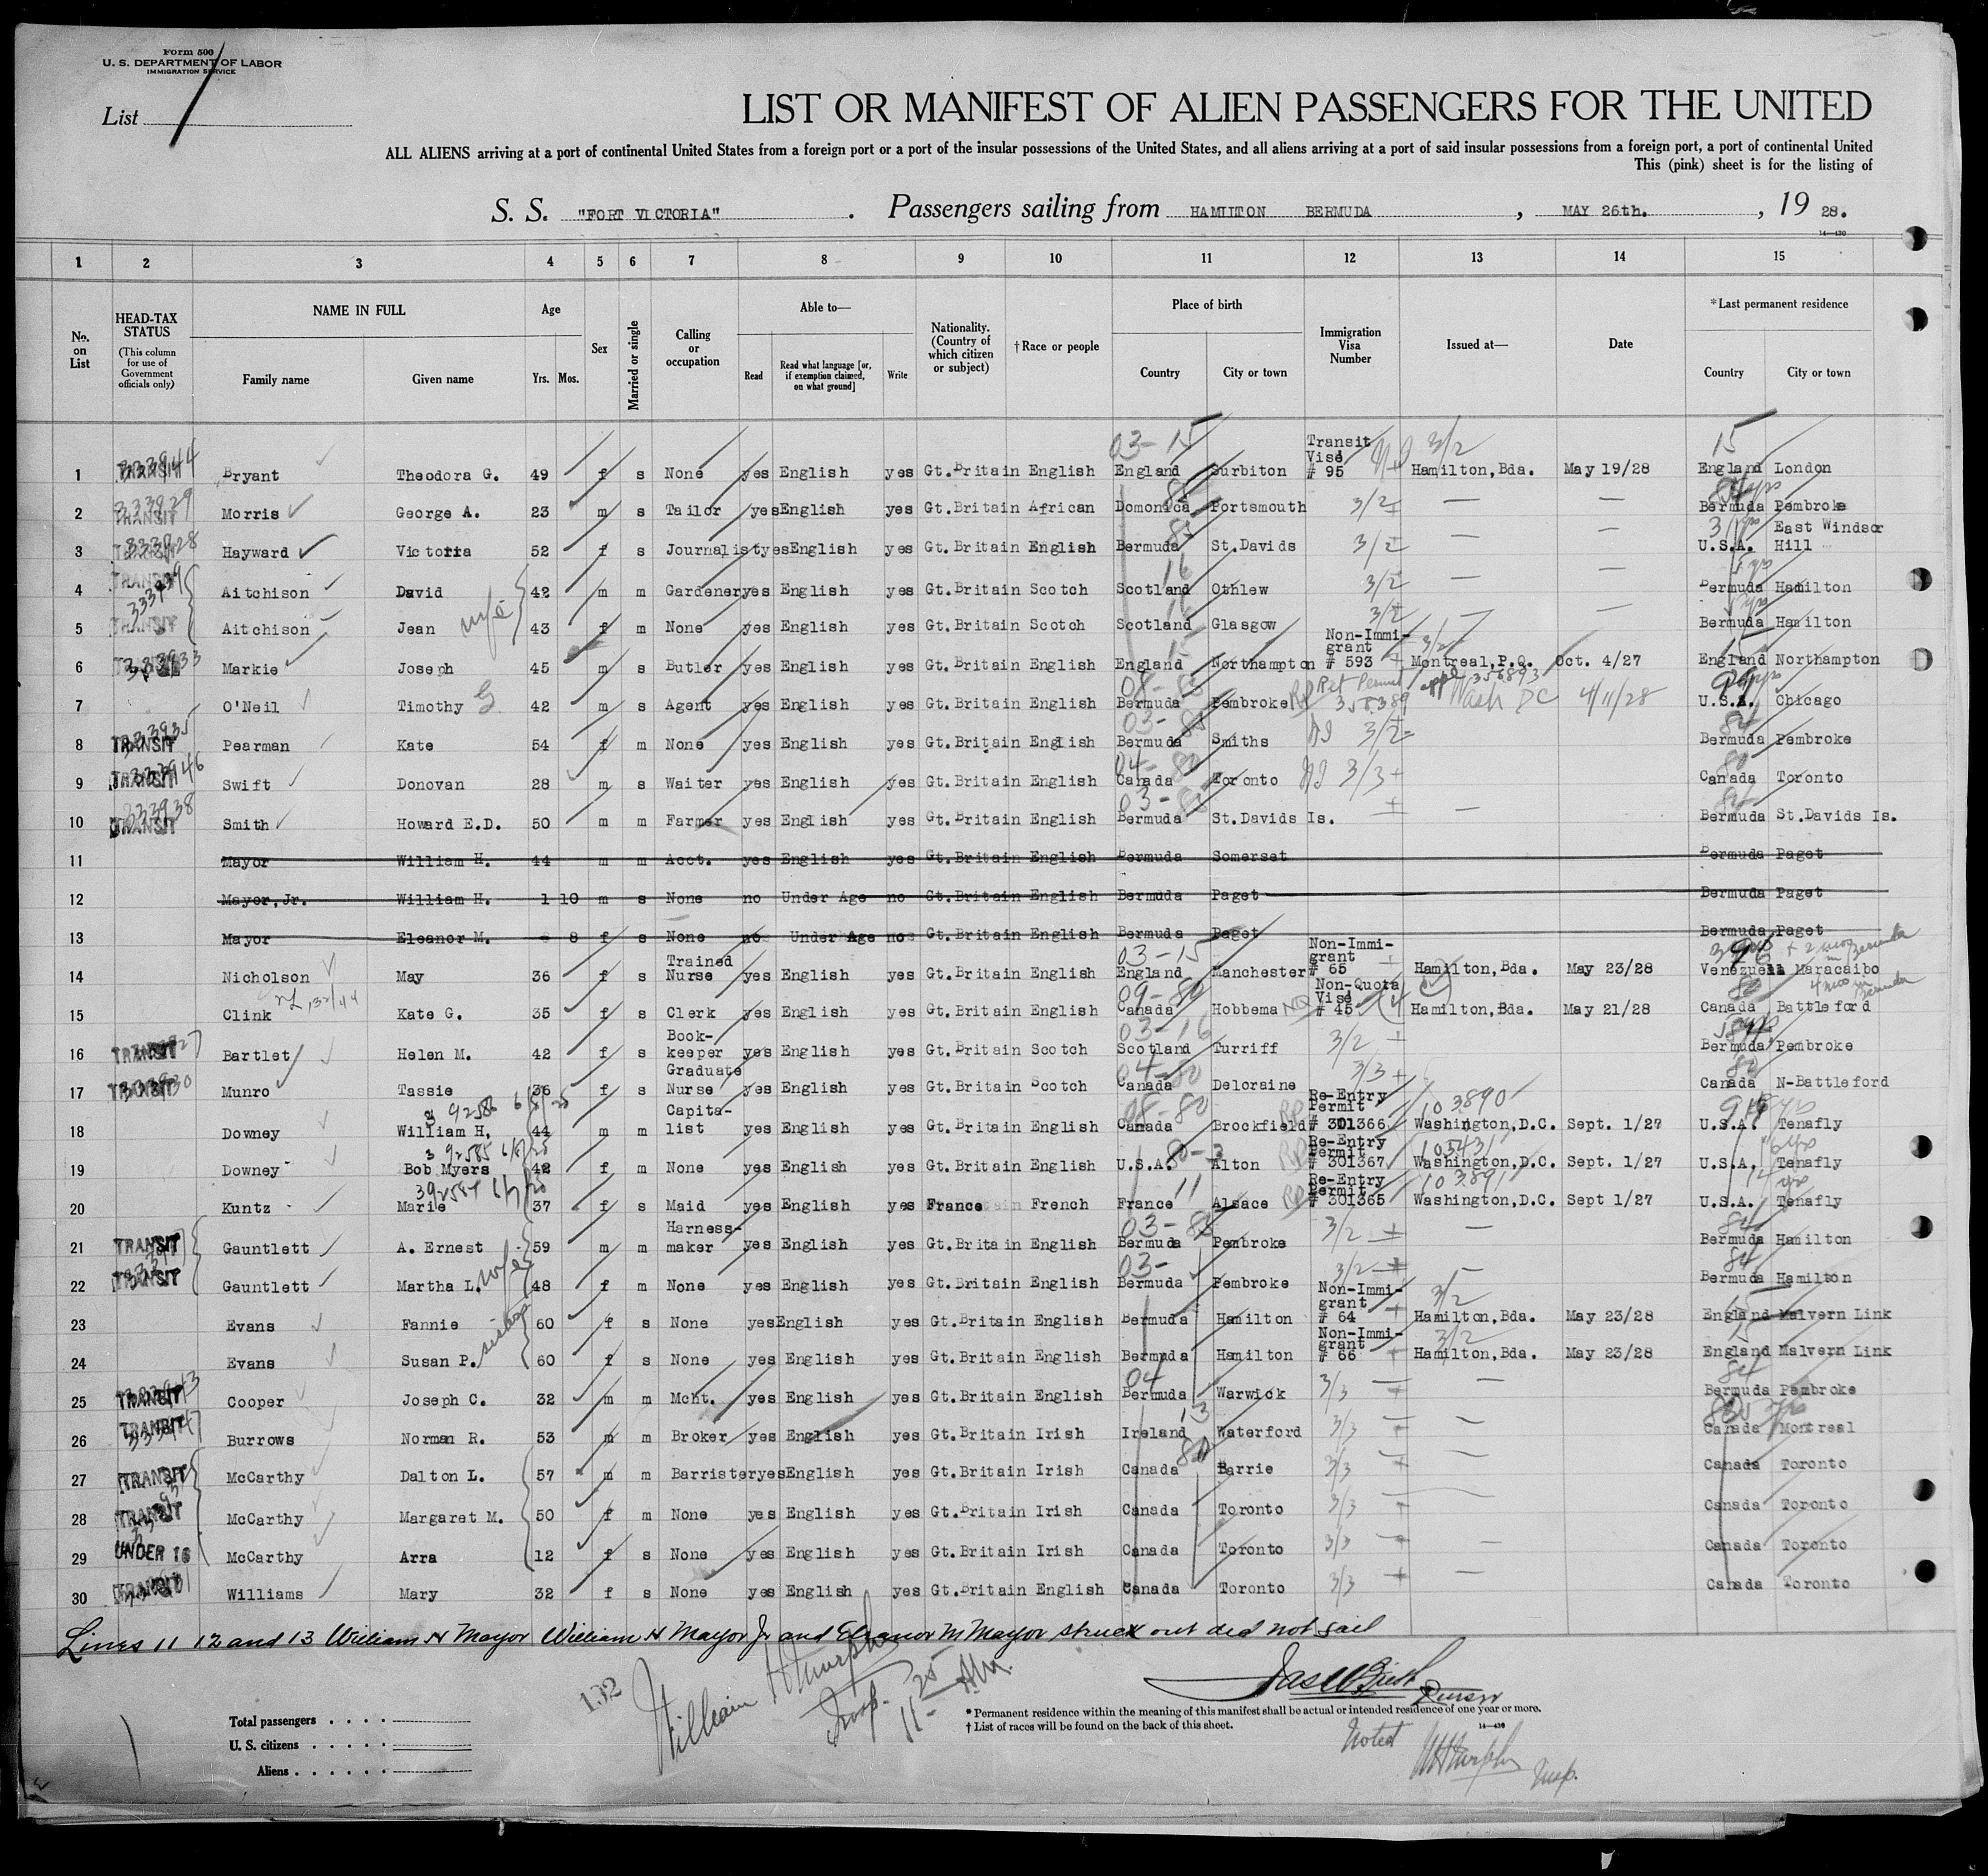 Form 500
U. S. DEPARTMENT OF LABOR
IMMIGRATION SERVICE
List 1
LIST OR MANIFEST OF ALIEN PASSENGERS FOR THE UNITED
ALL ALIENS arriving at a port of continental United States from a foreign port or a port of the insular possessions of the United States, and all aliens arriving at a port of said insular possessions from a foreign port, a port of continental United
This (pink) sheet is for the listing of
S. S. "FORT VICTORIA" . Passengers sailing from HAMILTON BERMUDA , MAY 26th. , 19 28.
14—430
1 2 3 4 5 6 7 8 9 10 11 12 13 14 15
No. on List HEAD-TAX STATUS (This column for use of Government officials only) NAME IN FULL Family name Given name Age Yrs. Mos. Sex Married or single Calling or occupation Able to— Read Read what language [or, if exemption claimed, on what ground] Write Nationality. (Country of which citizen or subject) †Race or people Place of birth Country City or town Immigration Visa Number Issued at— Date *Last permanent residence Country City or town
1 TRANSIT Bryant Theodora G. 49 f s None yes English yes Gt.Britain English England Surbiton Transit Visé # 95 3/2 Hamilton,Bda. May 19/28 England London
2 TRANSIT Morris George A. 23 m s Tailor yes English yes Gt.Britain African Domonica Portsmouth 3/2 Bermuda Pembroke
3 TRANSIT Hayward Victoria 52 f s Journalist yes English yes Gt.Britain English Bermuda St.Davids 3/2 U.S.A. East Windsor Hill
4 TRANSIT Aitchison David 42 m m Gardener yes English yes Gt.Britain Scotch Scotland Othlew 3/2 Bermuda Hamilton
5 TRANSIT Aitchison Jean wife 43 f m None yes English yes Gt.Britain Scotch Scotland Glasgow 3/2 Bermuda Hamilton
6 Markie Joseph 45 m s Butler yes English yes Gt.Britain English England Northampton Non-Immigrant # 593 3/2 Montreal,P.Q. Oct. 4/27 England Northampton
7 O'Neil Timothy G 42 m s Agent yes English yes Gt.Britain English Bermuda Pembroke RP Ret Permit 358389 appl 356893 Wash DC 4/11/28 U.S.A. Chicago
8 TRANSIT Pearman Kate 54 f m None yes English yes Gt.Britain English Bermuda Smiths 3/2 Bermuda Pembroke
9 TRANSIT Swift Donovan 28 m s Waiter yes English yes Gt.Britain English Canada Toronto 3/3 Canada Toronto
10 TRANSIT Smith Howard E.D. 50 m m Farmer yes English yes Gt.Britain English Bermuda St.Davids Is. Bermuda St.Davids Is.
11 Mayor William H. 44 m m Acct. yes English yes Gt.Britain English Bermuda Somerset Bermuda Paget
12 Mayor,Jr. William H. 1 10 m s None no Under Age no Gt.Britain English Bermuda Paget Bermuda Paget
13 Mayor Eleanor M. 8 f s None no Under Age no Gt.Britain English Bermuda Paget Bermuda Paget
14 Nicholson May 36 f s Trained Nurse yes English yes Gt.Britain English England Manchester Non-Immigrant # 65 Hamilton,Bda. May 23/28 Venezuela Maracaibo
15 Clink Kate G. 35 f s Clerk yes English yes Gt.Britain English Canada Hobbema Non-Quota Visé # 45 Hamilton,Bda. May 21/28 Canada Battleford
16 TRANSIT Bartlet Helen M. 42 f s Book-keeper yes English yes Gt.Britain Scotch Scotland Turriff 3/2 Bermuda Pembroke
17 TRANSIT Munro Tassie 36 f s Graduate Nurse yes English yes Gt.Britain Scotch Canada Deloraine 3/3 Canada N-Battleford
18 Downey William H. 44 m m Capita-list yes English yes Gt.Britain English Canada Brookfield Re-Entry Permit # 301366 103890 Washington,D.C. Sept. 1/27 U.S.A. Tenafly
19 Downey Bob Myers 42 f m None yes English yes Gt.Britain English U.S.A. Alton Re-Entry Permit # 301367 Washington,D.C. Sept. 1/27 U.S.A. Tenafly
20 Kuntz Marie 37 f s Maid yes English yes France French France Alsace Re-Entry Permit # 301365 103891 Washington,D.C. Sept 1/27 U.S.A. Tenafly
21 TRANSIT Gauntlett A. Ernest 59 m m Harness-maker yes English yes Gt.Britain English Bermuda Pembroke 3/2 Bermuda Hamilton
22 TRANSIT Gauntlett Martha L. wife 48 f m None yes English yes Gt.Britain English Bermuda Pembroke 3/2 Bermuda Hamilton
23 Evans Fannie 60 f s None yes English yes Gt.Britain English Bermuda Hamilton Non-Immigrant # 64 3/2 Hamilton,Bda. May 23/28 England Malvern Link
24 Evans Susan P. sister 60 f s None yes English yes Gt.Britain English Bermuda Hamilton Non-Immigrant # 66 3/2 Hamilton,Bda. May 23/28 England Malvern Link
25 TRANSIT Cooper Joseph C. 32 m m Mcht. yes English yes Gt.Britain English Bermuda Warwick 3/3 Bermuda Pembroke
26 TRANSIT Burrows Norman R. 53 m m Broker yes English yes Gt.Britain Irish Ireland Waterford 3/3 Canada Montreal
27 TRANSIT McCarthy Dalton L. 57 m m Barrister yes English yes Gt.Britain Irish Canada Barrie 3/3 Canada Toronto
28 TRANSIT McCarthy Margaret M. 50 f m None yes English yes Gt.Britain Irish Canada Toronto 3/3 Canada Toronto
29 UNDER 16 McCarthy Arra 12 f s None yes English yes Gt.Britain Irish Canada Toronto 3/3 Canada Toronto
30 TRANSIT Williams Mary 32 f s None yes English yes Gt.Britain English Canada Toronto 3/3 Canada Toronto
Lines 11 12 and 13 William H Mayor William H Mayor Jr and Eleanor M Mayor struck out did not sail
132
William H Murphy
Insp.
11 25 AM.
Total passengers . . . .
U. S. citizens . . . . .
Aliens . . . . . .
* Permanent residence within the meaning of this manifest shall be actual or intended residence of one year or more.
† List of races will be found on the back of this sheet.
14—430
Noted
WHMurphy
Insp.